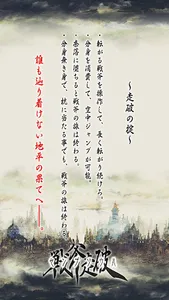 ～走破の掟～
・転がる戦斧を操作して、長く転がり続けろ。
・分身を消費して、空中ジャンプが可能。
・奈落に堕ちると戦斧の旅は終わる。
・分身無き身で、杭に当たる事でも、戦斧の旅は終わる。
誰も辿り着けない地平の果てへ――。